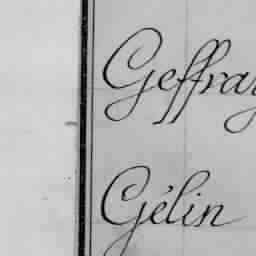 Geffray
Gélin